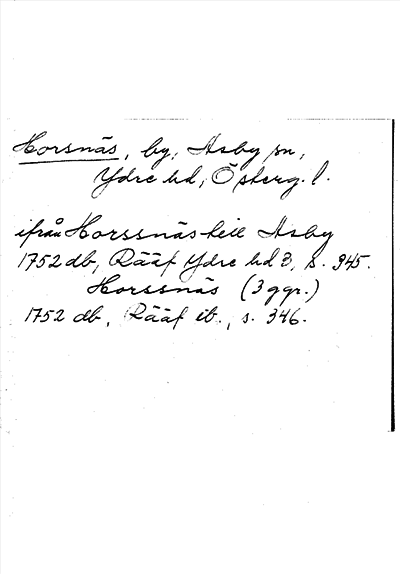 Horsnäs, by, Asby sn,
Ydre hd, Österg. l.
ifrån Horssnäs teil Asby
1752 db, Rääf Ydre hd 3, s. 345.
Horssnäs (3 ggr.)
1752 db, Rääf ib., s. 346.